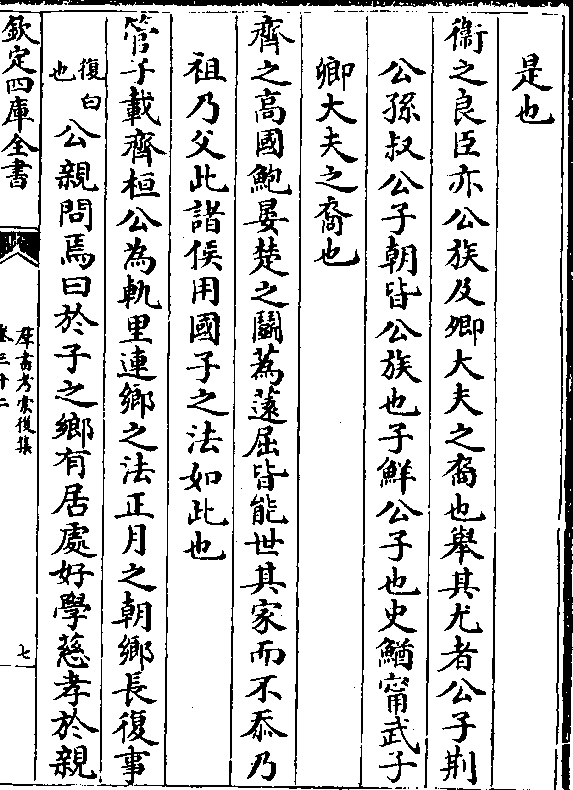 是也
衞之良臣亦公族及卿大夫之裔也舉其尤者公子荆
公孫叔公子朝皆公族也子鮮公子也史鰌甯武子
卿大夫之裔也
齊之高國鮑晏楚之鬬蒍薳屈皆能世其家而不忝乃
祖乃父此諸侯用國子之法如此也
管子載齊桓公為軌里連鄉之法正月之朝鄉長復事
復白
也
公親問焉曰於子之鄉有居處好學慈孝於親
欽定四庫全書
羣書考索後集
卷三十二
七